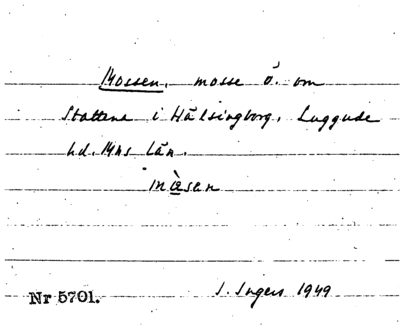 Mossen, mosse ö. om
Stattena i Hälsingborg, Luggude
hd. Mhs län.
mòsen
Nr 5701.
I. Ingers 1949